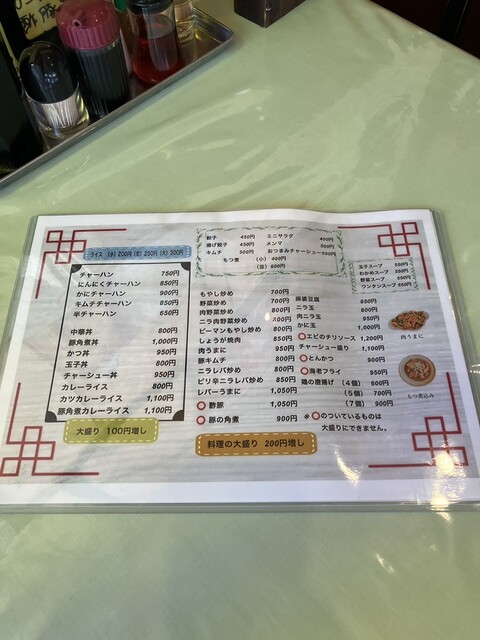 ライス (小) 200円 (並) 250円 (大) 300円
チャーハン 750円
にんにくチャーハン 850円
かにチャーハン 900円
キムチチャーハン 850円
半チャーハン 650円
中華丼 800円
豚角煮丼 1,000円
かつ丼 950円
玉子丼 800円
チャーシュー丼 950円
カレーライス 800円
カツカレーライス 1,100円
豚角煮カレーライス 1,100円
大盛り 100円増し
餃子 450円
揚げ餃子 450円
キムチ 500円
もつ煮 (小) 400円
(並) 600円
ミニサラダ 400円
メンマ 500円
おつまみチャーシュー 500円
もやし炒め 700円
野菜炒め 700円
肉野菜炒め 800円
ニラ肉野菜炒め
ピーマンもやし炒め 800円
しょうが焼肉 850円
肉うまに 950円
豚キムチ
ニラレバ炒め 850円
ピリ辛ニラレバ炒め 850円
レバーうまに 1,050円
〇酢豚 1,050円
〇豚の角煮 900円
料理の大盛り 200円増し
麻婆豆腐
ニラ玉
肉ニラ玉
かに玉 1,000円
〇エビのチリソース 1,200円
チャーシュー盛り 1,100円
〇とんかつ 900円
〇海老フライ 950円
鶏の唐揚げ (4個) 600円
(5個) 700円
(7個) 900円
※〇のついているものは
大盛りにできません。
玉子スープ
わかめスープ
野菜スープ
ワンタンスープ 650円
肉うまに
もつ煮込み